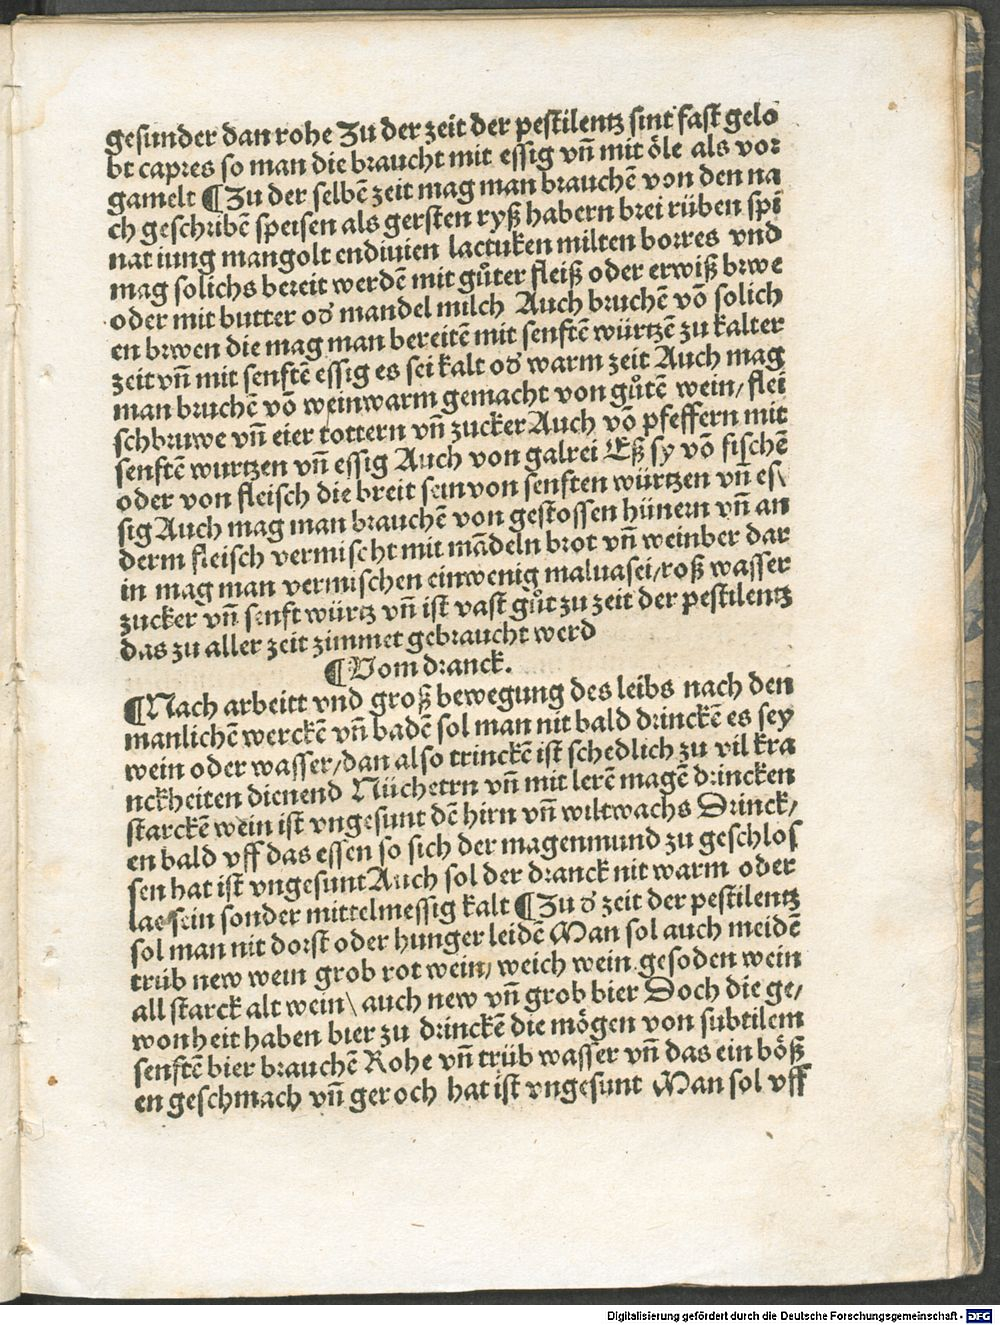 gesunder dan rohe Zu der zeit der pestilentz sint fast gelo
bt capres so man die braucht mit essig vñ mit öle als vor
gamelt ¶ Zu der selbē zeit mag man brauchē von den na
ch geschribē speisen als gersten ryß habern brei rüben spi
nat iung mangolt endiuien lactuken milten borres vnd
mag solichs bereit werdē mit gůter fleiß oder erwiß brwe
oder mit butter od' mandel milch Auch bruchē võ solich
en brwen die mag man bereitē mit senftē würtzē zu kalter
zeit vñ mit senftē essig es sei kalt od' warm zeit Auch mag
man bruchē võ weinwarm gemacht von gůtē wein/ flei
schbruwe vñ eier tottern vñ zucker Auch võ pfeffern mit
senftē wurtzen vñ essig Auch von galrei Eß sy võ fischē
oder von fleisch die breit sein von senften würtzen vñ es\
sig Auch mag man brauchē von gestossen hünern vñ an
derm fleisch vermischt mit mādeln brot vñ weinber dar
in mag man vermischen einwenig maluasei/ roß wasser
zucker vñ senft würtz vñ ist vast gůt zu zeit der pestilentz
das zu aller zeit zimmet gebraucht werd
¶ Vom dranck.
¶ Nach arbeitt vnd groß bewegung des leibs nach den
manlichē werckē vñ badē sol man nit bald drinckē es sey
wein oder wasser/ dan also trinckē ist schedlich zu vil kra
nckheiten dienend Nüchetrn vñ mit lerē magē drincken
starckē wein ist vngesunt dē hirn vñ wiltwachs Drinck/
en bald vff das essen so sich der magenmund zu geschlos
sen hat ist vngesunt Auch sol der dranck nit warm oder
lae sein sonder mittelmessig kalt ¶ Zu d' zeit der pestilentz
sol man nit dorst oder hunger leidē Man sol auch meidē
trüb new wein grob rot wein/ weich wein gesoden wein
all starck alt wein\ auch new vñ grob bier Doch die ge/
wonheit haben bier zu drinckē die mögen von subtilem
senftē bier brauchē Rohe vñ trüb wasser vñ das ein böß
en geschmach vñ geroch hat ist vngesunt Man sol vff
Digitalisierung gefördert durch die Deutsche Forschungsgemeinschaft - DFG